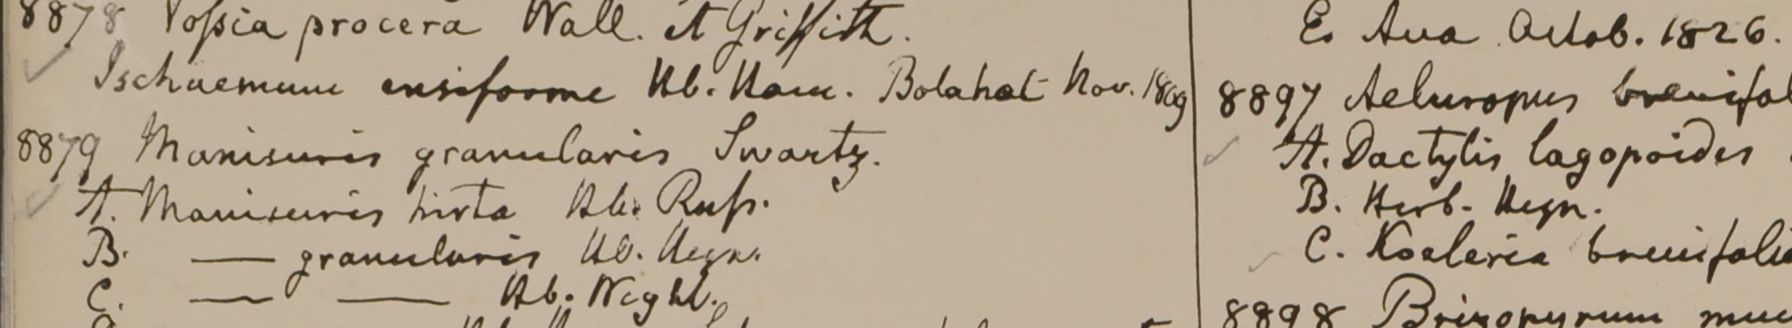 8878 Vossia procera Wall. et Griffith.
Ischaemum ensiforme Hb. Ham. Bolahat Nov. 1809
8879 Manisuris granularis Swartz.
A. Manisuris hirta Hb. Russ.
B. — granularis Hb. Heyn.
C. — — Hb. Wight.
E. Ava Octob. 1826.
8897 Aeluropus brevifol
A. Dactylis lagopoides
B. Herb. Heyn.
C. Koeleria brevifolia
8898 Brizopyrum muc